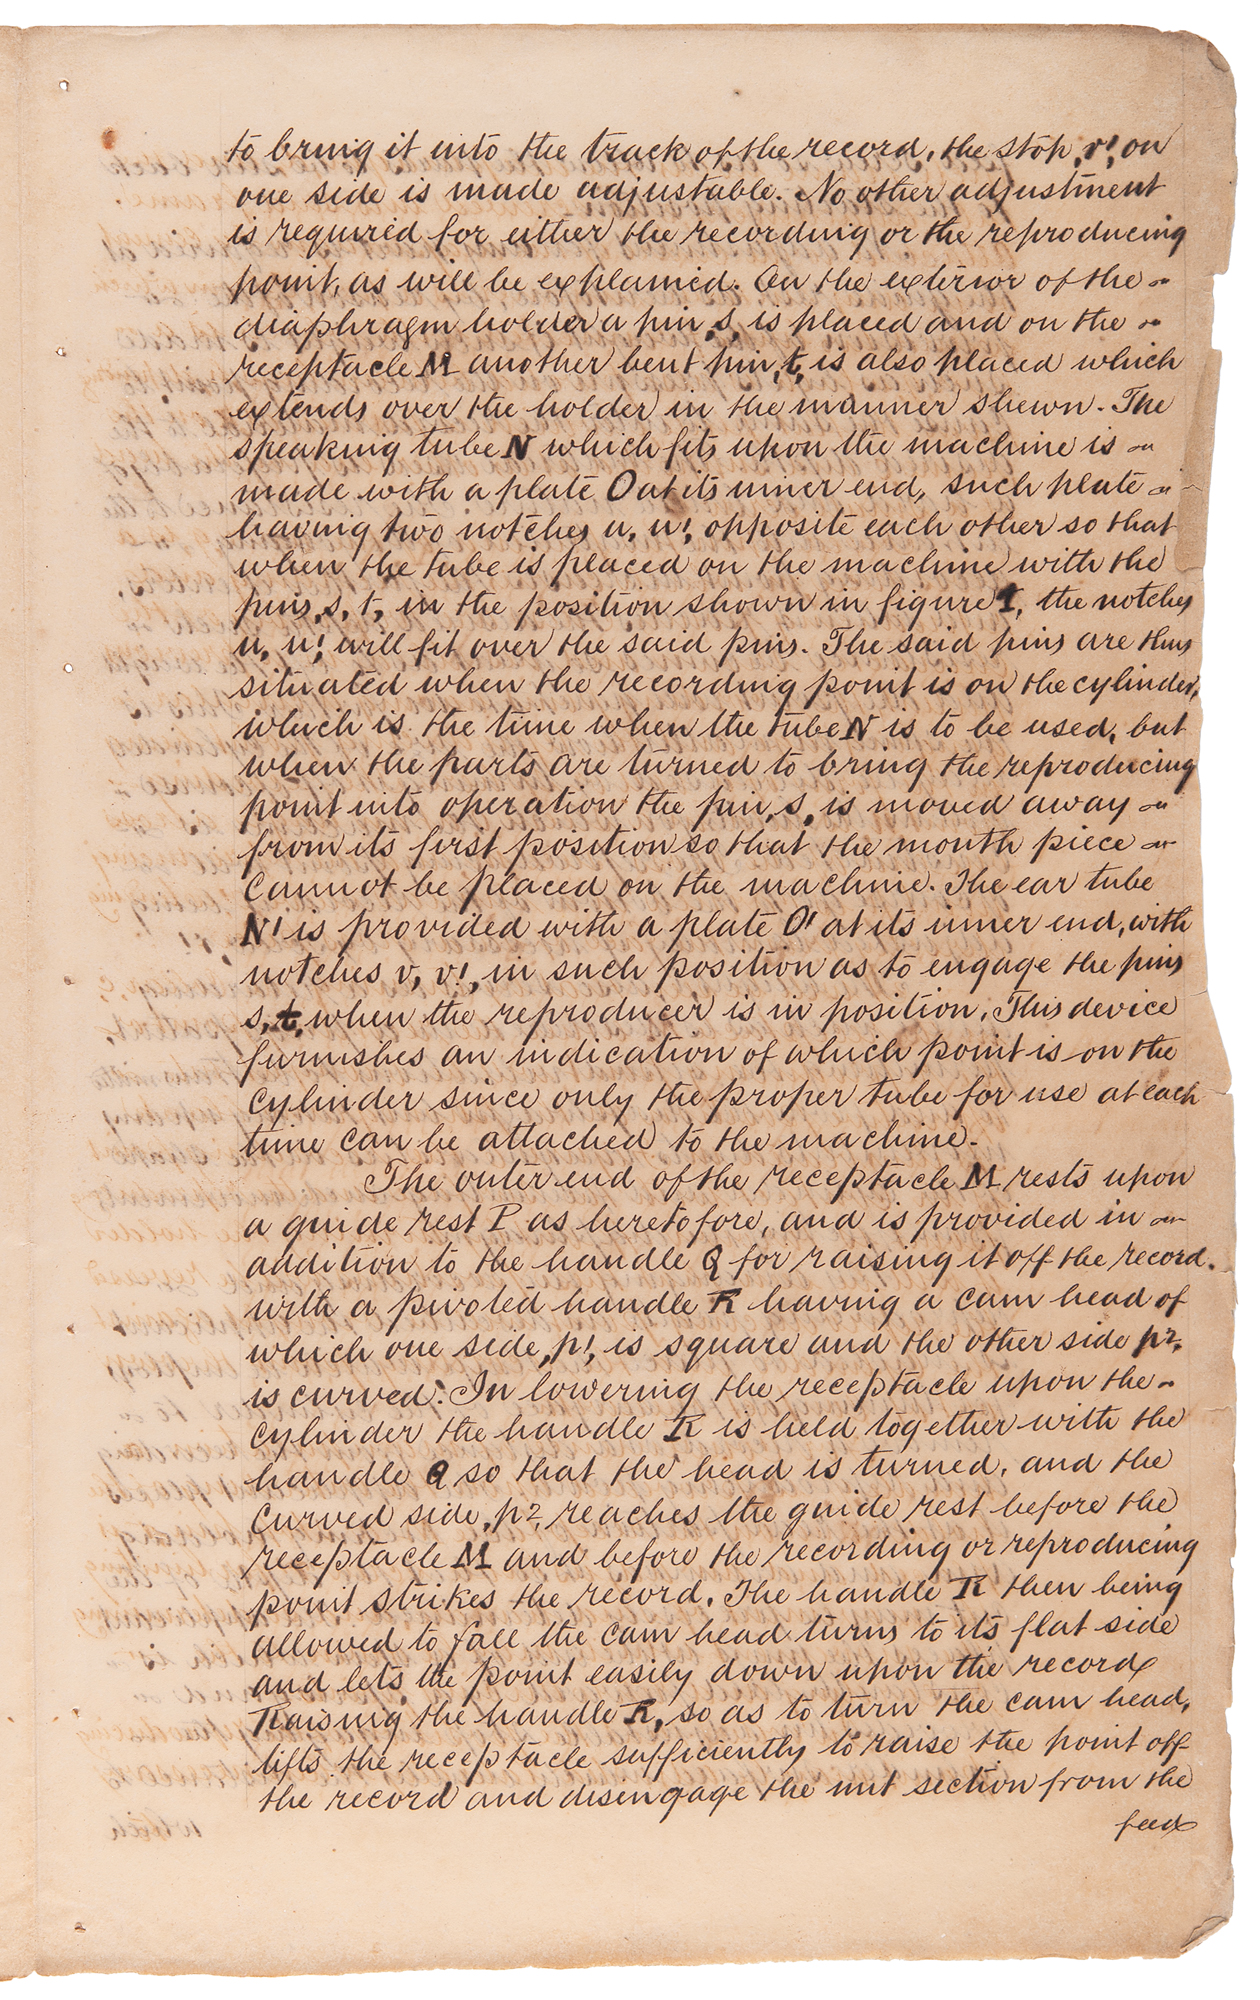 to bring it into the track of the record, the stop, r', on
one side is made adjustable. No other adjustment
is required for either the recording or the reproducing
point, as will be explained. On the exterior of the ~
diaphragm holder a pin, s, is placed and on the ~
receptacle M another bent pin, t, is also placed which
extends over the holder in the manner shewn. The
speaking tube N which fits upon the machine is ~
made with a plate O at its inner end, such plate ~
having two notches u, u', opposite each other so that
when the tube is placed on the machine with the
pins, s, t, in the position shown in figure 1, the notches
u, u', will fit over the said pins. The said pins are thus
situated when the recording point is on the cylinder,
which is the time when the tube N is to be used, but
when the parts are turned to bring the reproducing
point into operation the pin, s, is moved away ~
from its first position so that the mouth piece ~
cannot be placed on the machine. The ear tube
N' is provided with a plate O' at its inner end, with
notches v, v', in such position as to engage the pins
s, t, when the reproducer is in position. This device
furnishes an indication of which point is on the
cylinder since only the proper tube for use at each
time can be attached to the machine.
The outer end of the receptacle M rests upon
a guide rest P as heretofore, and is provided in ~
addition to the handle Q for raising it off the record.
with a pivoted handle R having a cam head of
which one side, p', is square and the other side p²,
is curved. In lowering the receptacle upon the ~
cylinder the handle R is held together with the
handle Q so that the head is turned, and the
curved side, p², reaches the guide rest before the
receptacle M and before the recording or reproducing
point strikes the record. The handle R then being
allowed to fall the cam head turns to its flat side
and lets the point easily down upon the record
Raising the handle R, so as to turn the cam head,
lifts the receptacle sufficiently to raise the point off
the record and disengage the nut section from the
feed